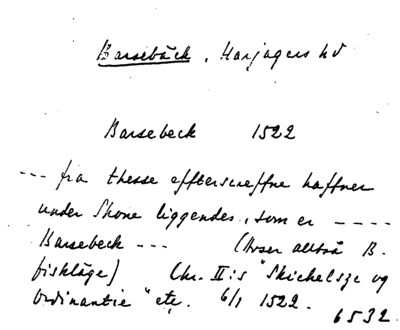 Barsebäck, Harjagers hd
Barsebeck 1522
--- fra thesse effterscreffne haffner
under Skone liggendes, som er ----
Barsebeck --- (Avser alltså B.
fiskläge) Chr. II:s "Skickelsze og
Ordinantie" etc. 6/1 1522.
6532